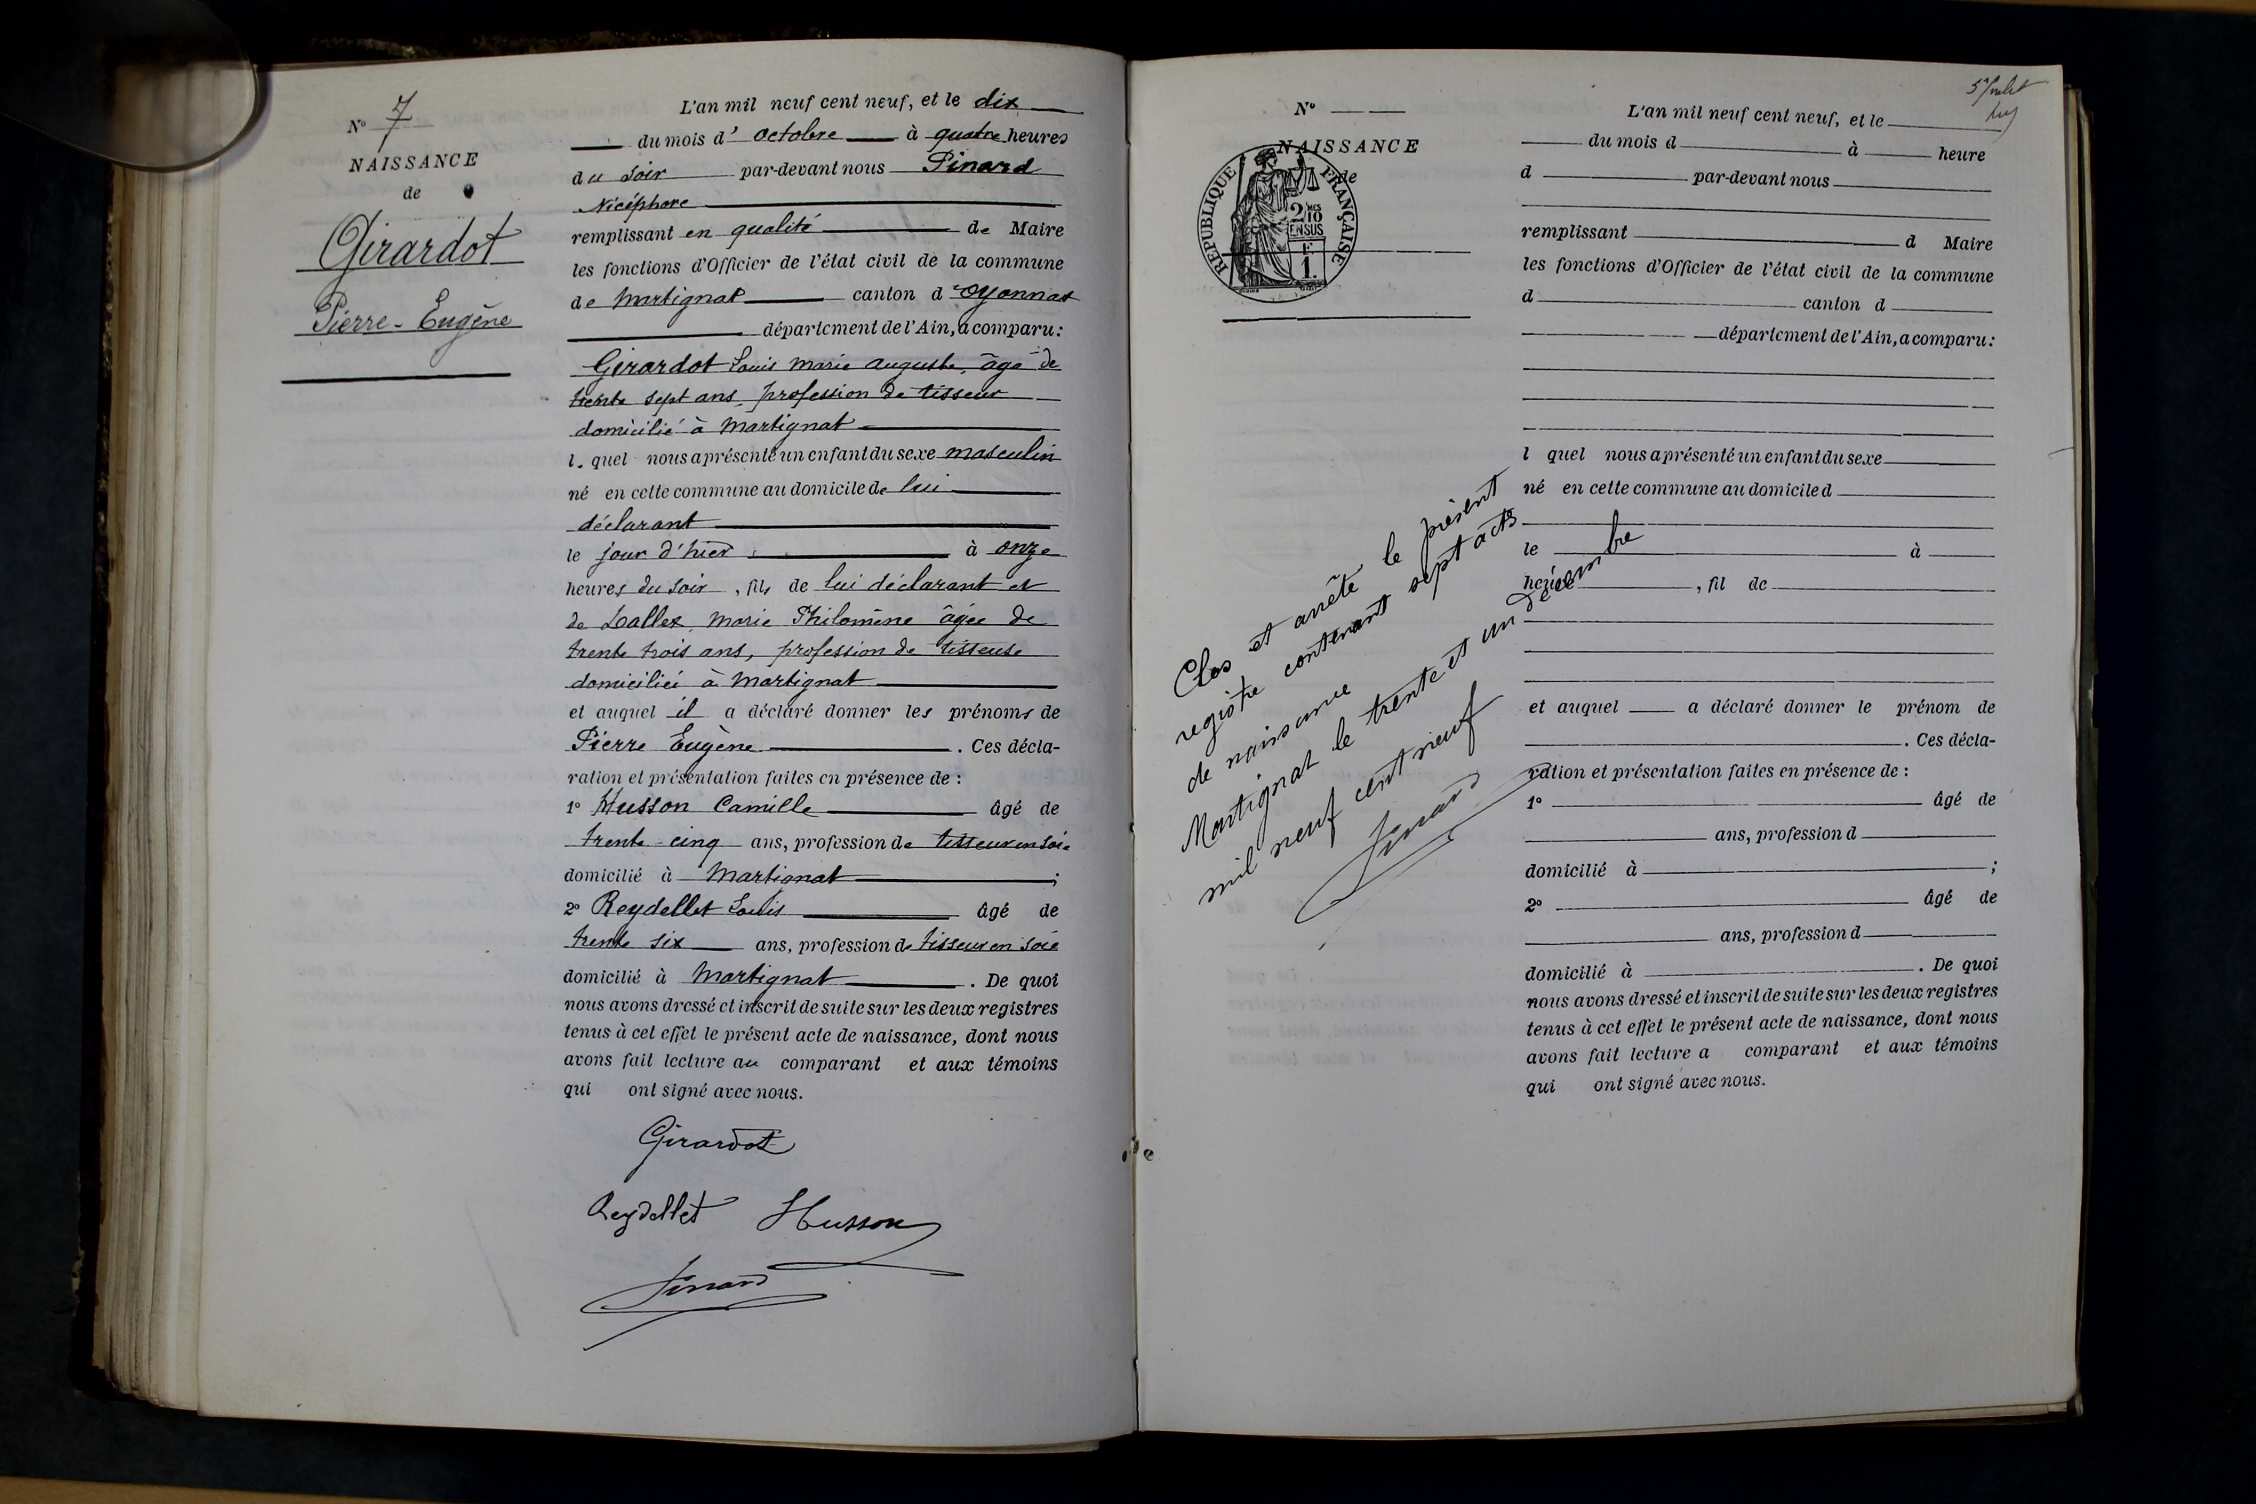 N° 7
NAISSANCE
de
Girardot
Pierre-Eugène
L'an mil neuf cent neuf, et le dix
du mois d' octobre à quatre heures
du soir par-devant nous Pinard
Nicéphore
remplissant en qualité de Maire
les fonctions d'Officier de l'état civil de la commune
de Martignat canton d'Oyonnax
département de l'Ain, a comparu:
Girardot Louis Marie Auguste, âgé de
trente sept ans, profession de tisseur
domicilié à Martignat
l. quel nous a présenté un enfant du sexe masculin
né en cette commune au domicile de lui
déclarant
le jour d'hier à onze
heures du soir, fils de lui déclarant et
de Lallex Marie Philomène âgée de
trente trois ans, profession de tisseuse
domiciliée à Martignat
et auquel il a déclaré donner les prénoms de
Pierre Eugène. Ces décla-
ration et présentation faites en présence de :
1° Husson Camille âgé de
trente-cinq ans, profession de tisseur en soie
domicilié à Martignat;
2° Reydellet Louis âgé de
trente six ans, profession de tisseur en soie
domicilié à Martignat. De quoi
nous avons dressé et inscrit de suite sur les deux registres
tenus à cet effet le présent acte de naissance, dont nous
avons fait lecture au comparant et aux témoins
qui ont signé avec nous.
Girardot
Reydellet Husson
Pinard
N°
NAISSANCE
de
RÉPUBLIQUE FRANÇAISE
2/10
EN SUS
F
1.
L'an mil neuf cent neuf, et le
du mois d à heure
d par-devant nous
remplissant d Maire
les fonctions d'Officier de l'état civil de la commune
d canton d
département de l'Ain, a comparu:
l quel nous a présenté un enfant du sexe
né en cette commune au domicile d
le à
heure , fil de
et auquel a déclaré donner le prénom de
. Ces décla-
ration et présentation faites en présence de :
1° âgé de
ans, profession d
domicilié à ;
2° âgé de
ans, profession d
domicilié à . De quoi
nous avons dressé et inscrit de suite sur les deux registres
tenus à cet effet le présent acte de naissance, dont nous
avons fait lecture a comparant et aux témoins
qui ont signé avec nous.
Clos et arrêté le présent
registre contenant sept actes
de naissance
Martignat le trente et un décembre
mil neuf cent neuf
Pinard